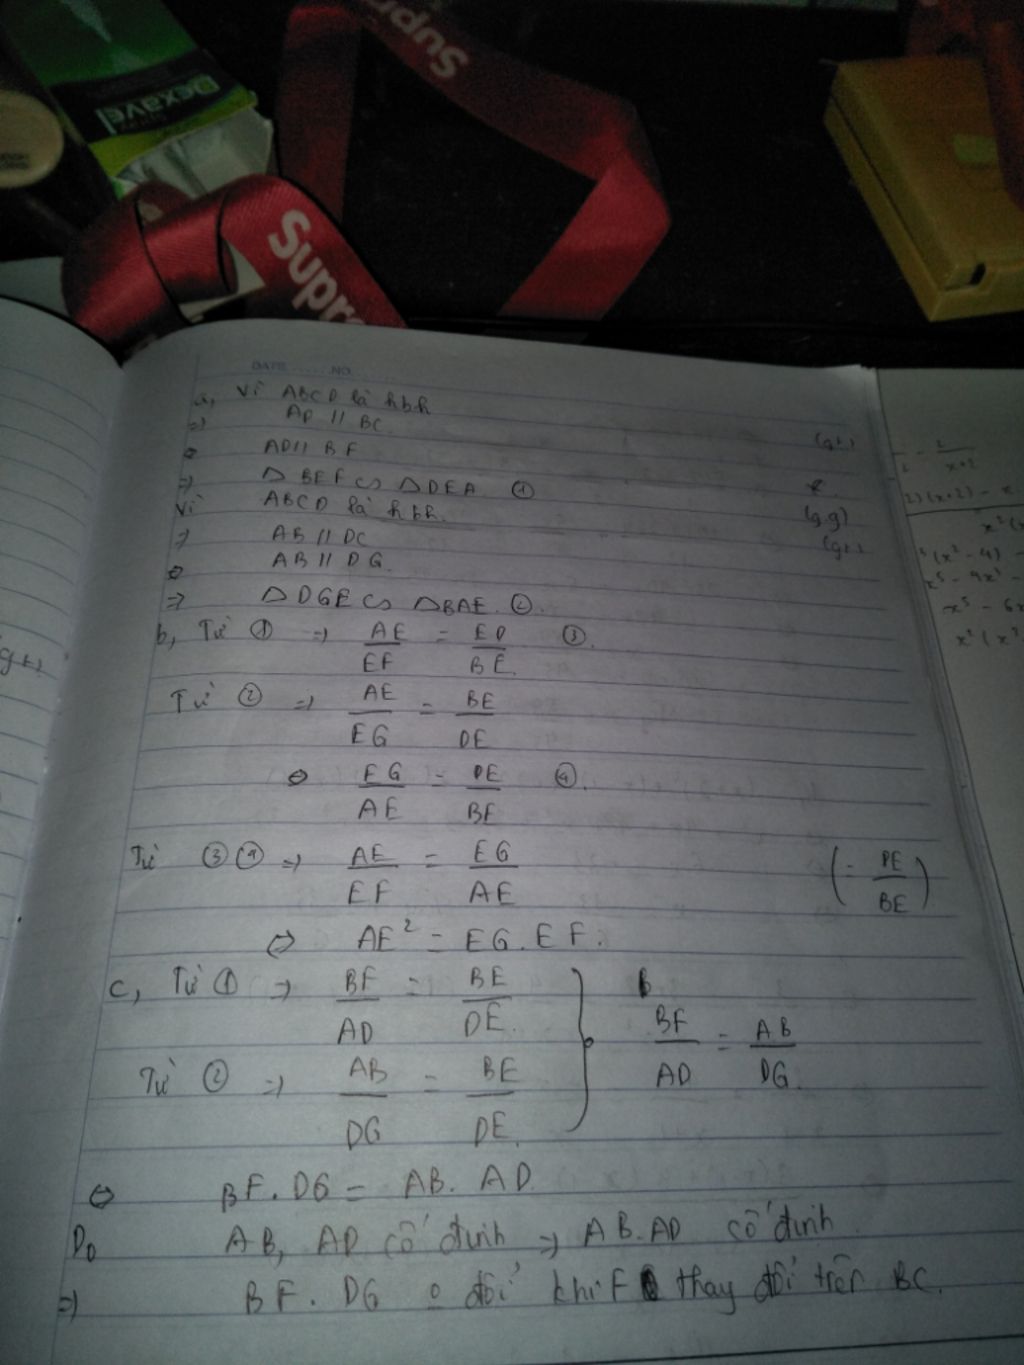 Supr
Dexavel
Supr
DATE ...... NO.
a, Vì ABCD là hbh (gt)
=> AD // BC
<=> AD // BF
=> △ BEF ∽ △ DEA ① (g.g)
Vì ABCD là hbh. (gt)
=> AB // DC
<=> AB // DG.
=> △ DGE ∽ △ BAE. ②.
b, Từ ① => AE/EF = ED/BE ③.
Từ ② => AE/EG = BE/DE
<=> EG/AE = DE/BE ④.
Từ ③ ④ => AE/EF = EG/AE (= DE/BE)
<=> AE² = EG. EF.
c, Từ ① => BF/AD = BE/DE.
Từ ② => AB/DG = BE/DE.
BF/AD = AB/DG.
<=> BF. DG = AB. AD
Do AB, AD cố định => AB.AD cố định
=> BF. DG o đổi khi F thay đổi trên BC.
(gt)
x+2
2)(x+2) - x
(x² - 4) -